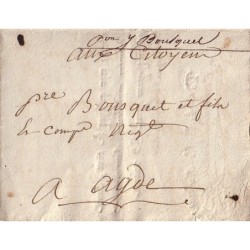 pour y Bousquet
aux Citoyens
pre Bousquet et fils
le compe Negt
a agde